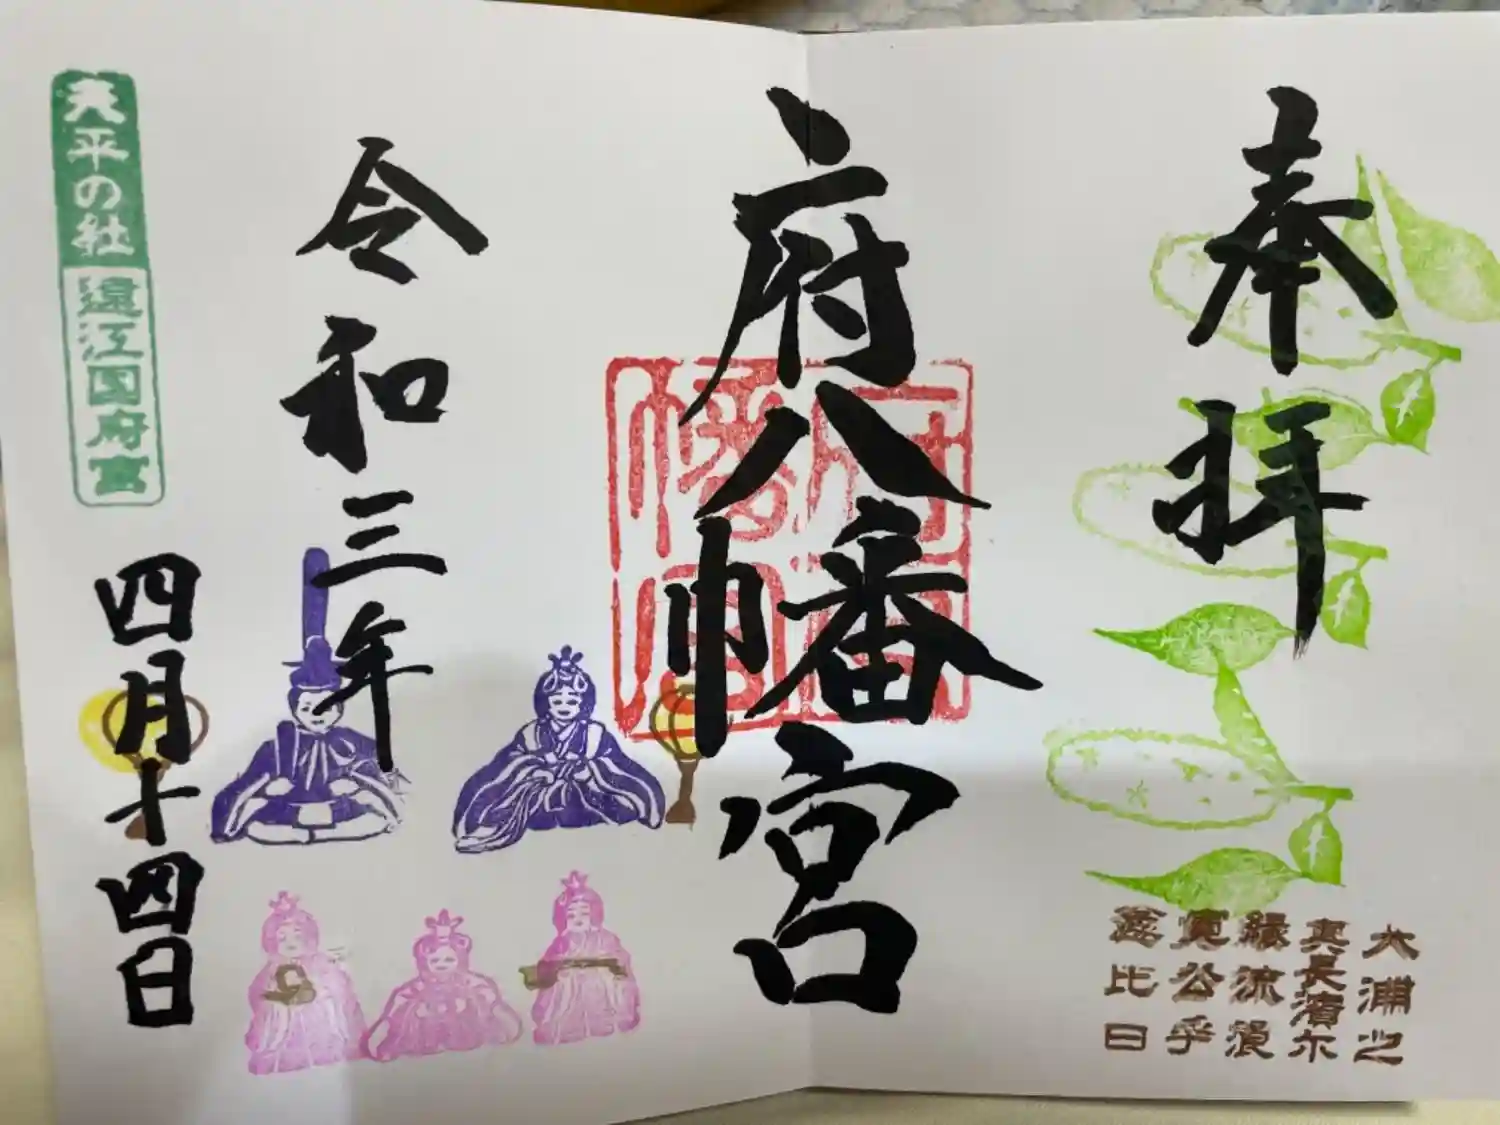 奉拝
大浦之
其長濱尓
縁流浪
寛公乎
念比日
府八幡宮
令和三年
四月十四日
天平の社
遠江国府宮